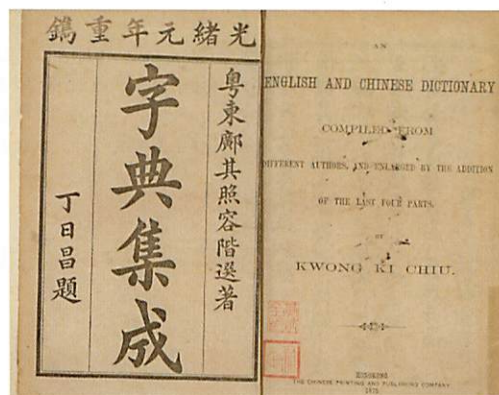 光緒元年重鐫
粵東鄺其照容階選著
字典集成
丁日昌題
AN
ENGLISH AND CHINESE DICTIONARY
COMPILED FROM
DIFFERENT AUTHORS, AND ENLARGED BY THE ADDITION
OF THE LAST FOUR PARTS.
BY
KWONG KI CHIU.
HONGKONG
THE CHINESE PRINTING AND PUBLISHING COMPANY
1875